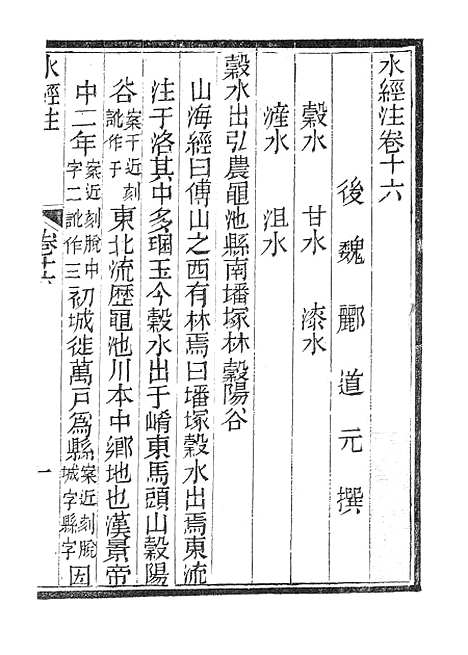 水經注卷十六
後魏酈道元撰
穀水 甘水 漆水
滻水 沮水
穀水出弘農黽池縣南墦塚林穀陽谷
山海經曰傅山之西有林焉曰墦塚穀水出焉東流
注于洛其中多珚玉今穀水出于崤東馬頭山穀陽
谷案于近刻訛作于東北流歷黽池川本中鄉地也漢景帝
中二年案近刻脫中字二訛作三初城徙萬戶為縣案近刻脫城字縣字因
水經注 卷十六 一